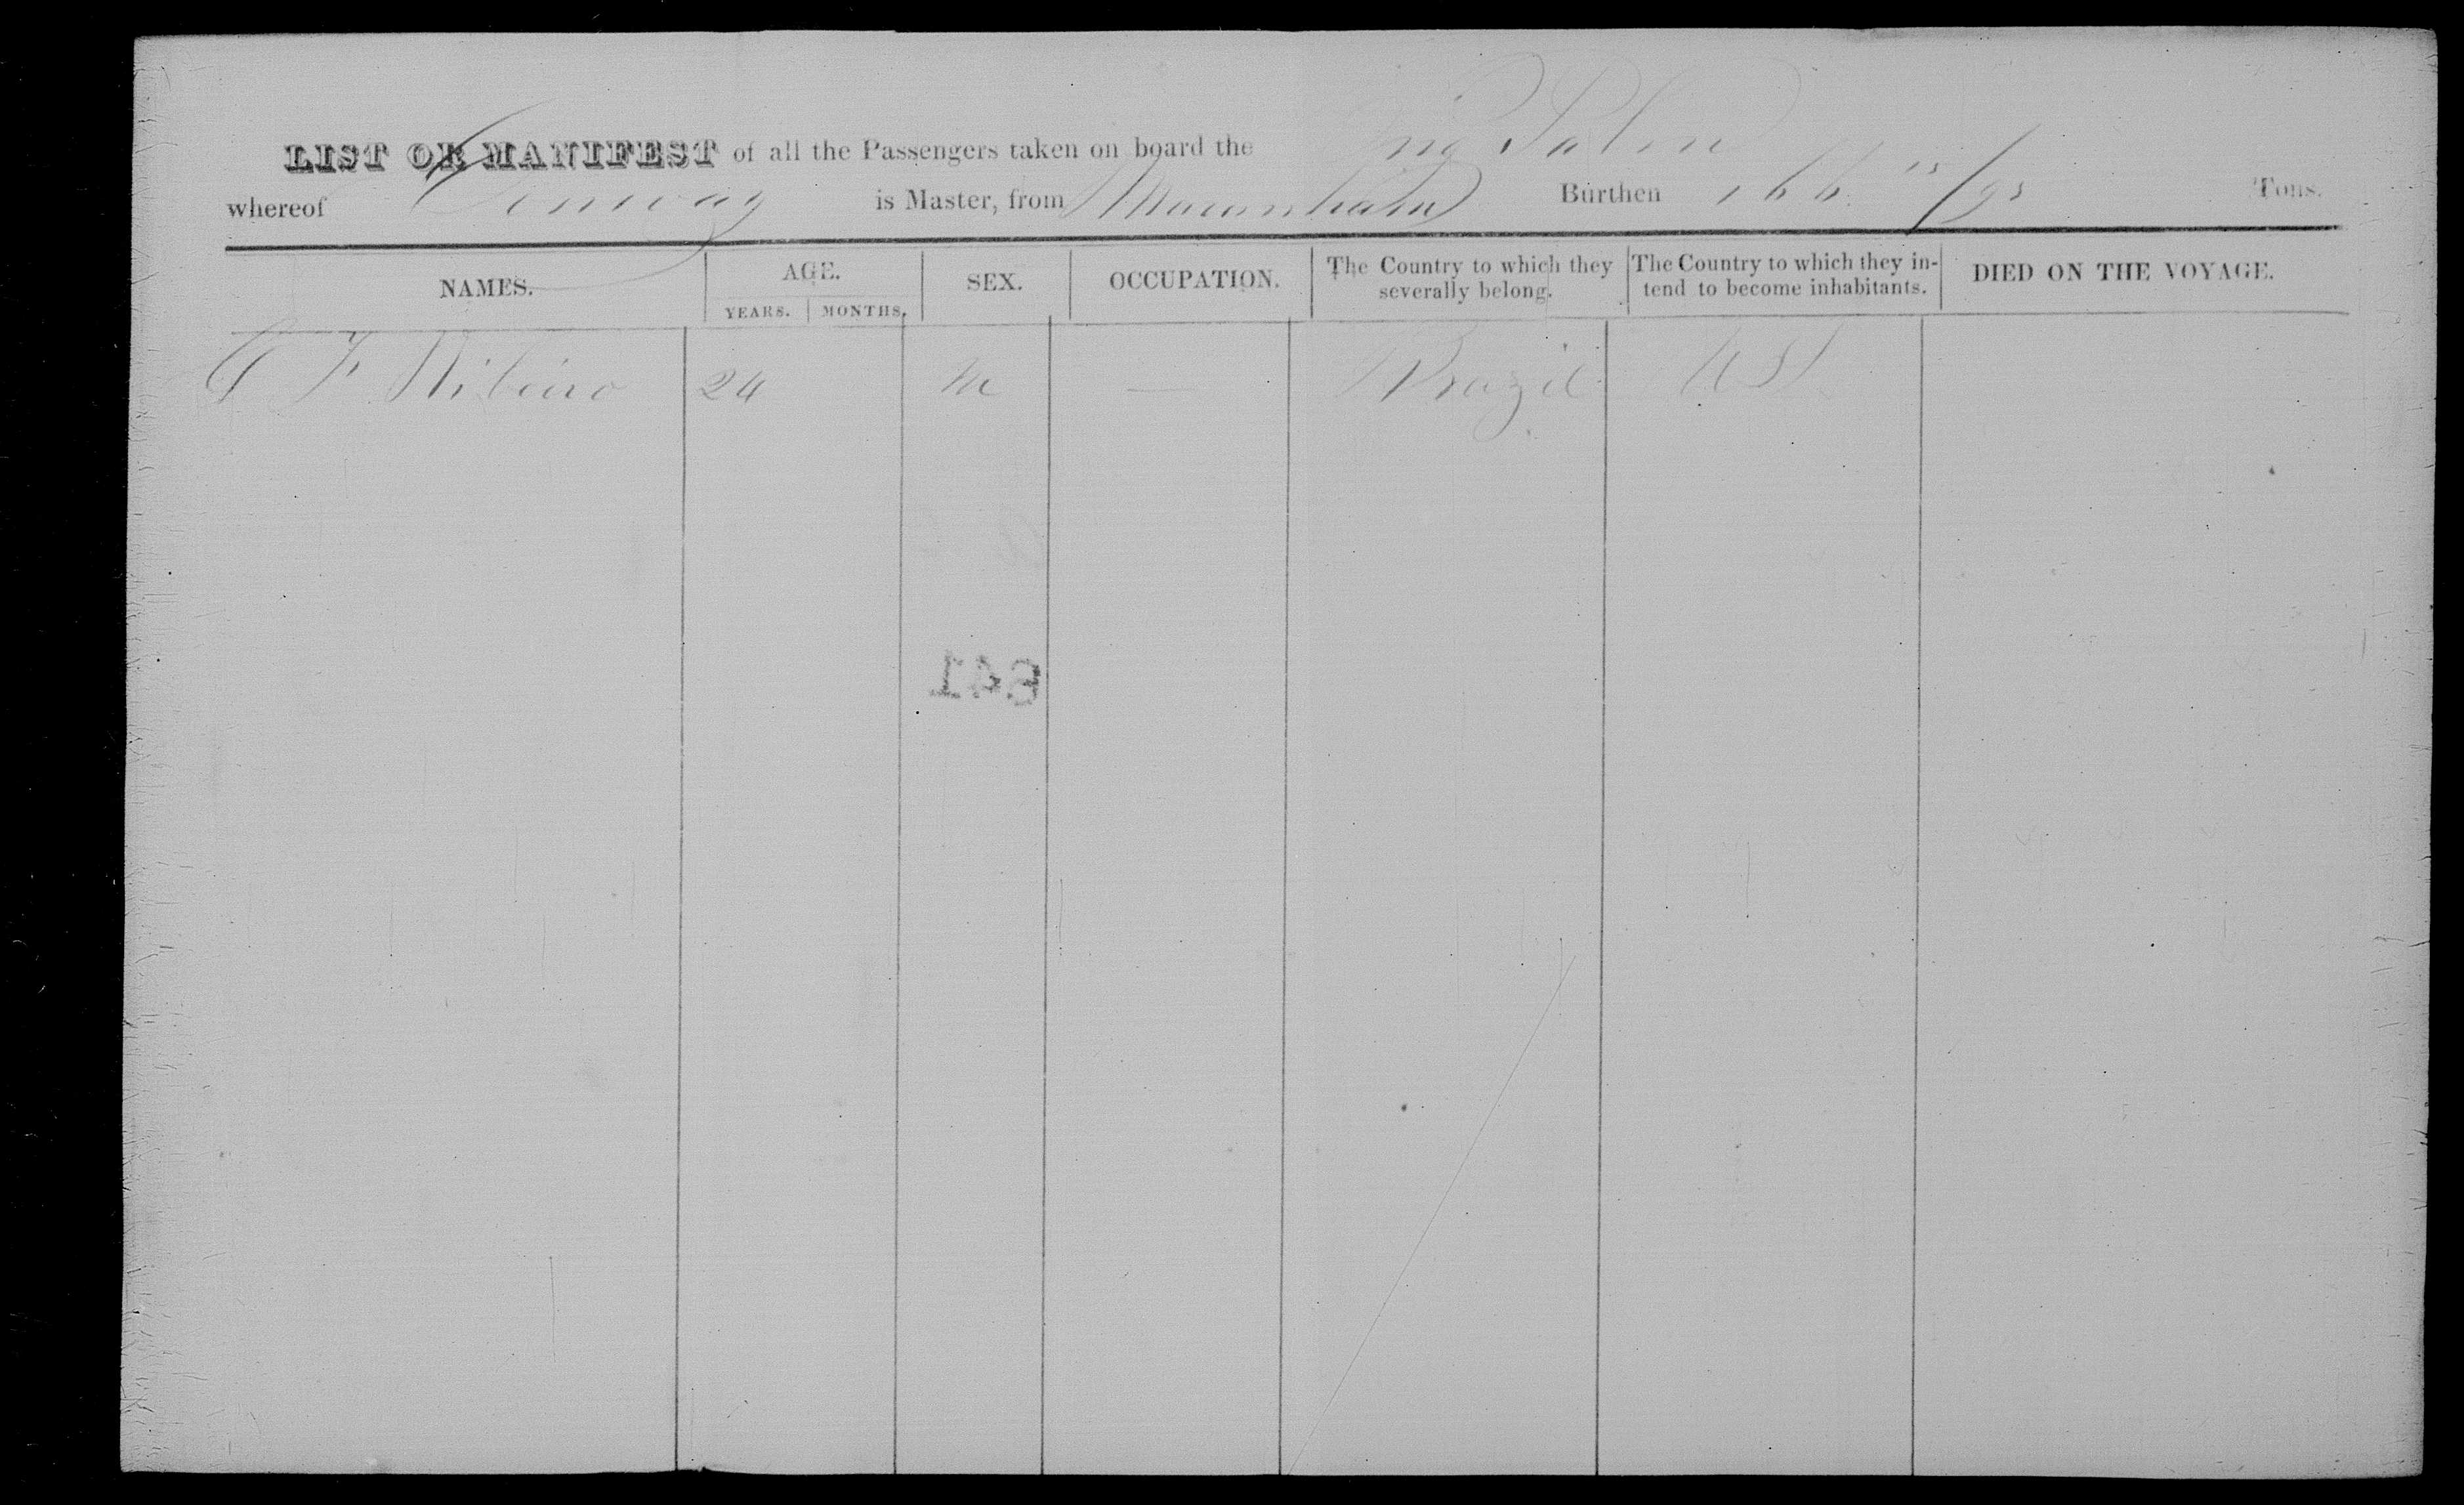 LIST OR MANIFEST of all the Passengers taken on board the
whereof Conway is Master, from Maranham Burthen 166 15/95 Tons.
NAMES. AGE. SEX. OCCUPATION. The Country to which they severally belong. The Country to which they in-tend to become inhabitants. DIED ON THE VOYAGE.
YEARS. MONTHS.
F Ribeiro 24 M — Brazil US
641